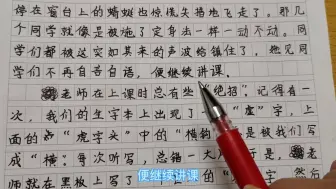 停在窗台上的蝴蝶也惊慌失措地飞走了。那几
个同学就像是被施了定身法一样一动不动。同
学们都被这突如其来的声波给镇住了，魏见同
学们不再自言自语，便继续讲课。
老师在上课时总有些“绝招”。记得有一
次，我们的生字本上出现了“虚”字，上
面的“虎字头”中的“横钩”是被我们写
成“横”。每次听写，总错一大
老
师就在黑板上写了
字，然后
便继续讲课